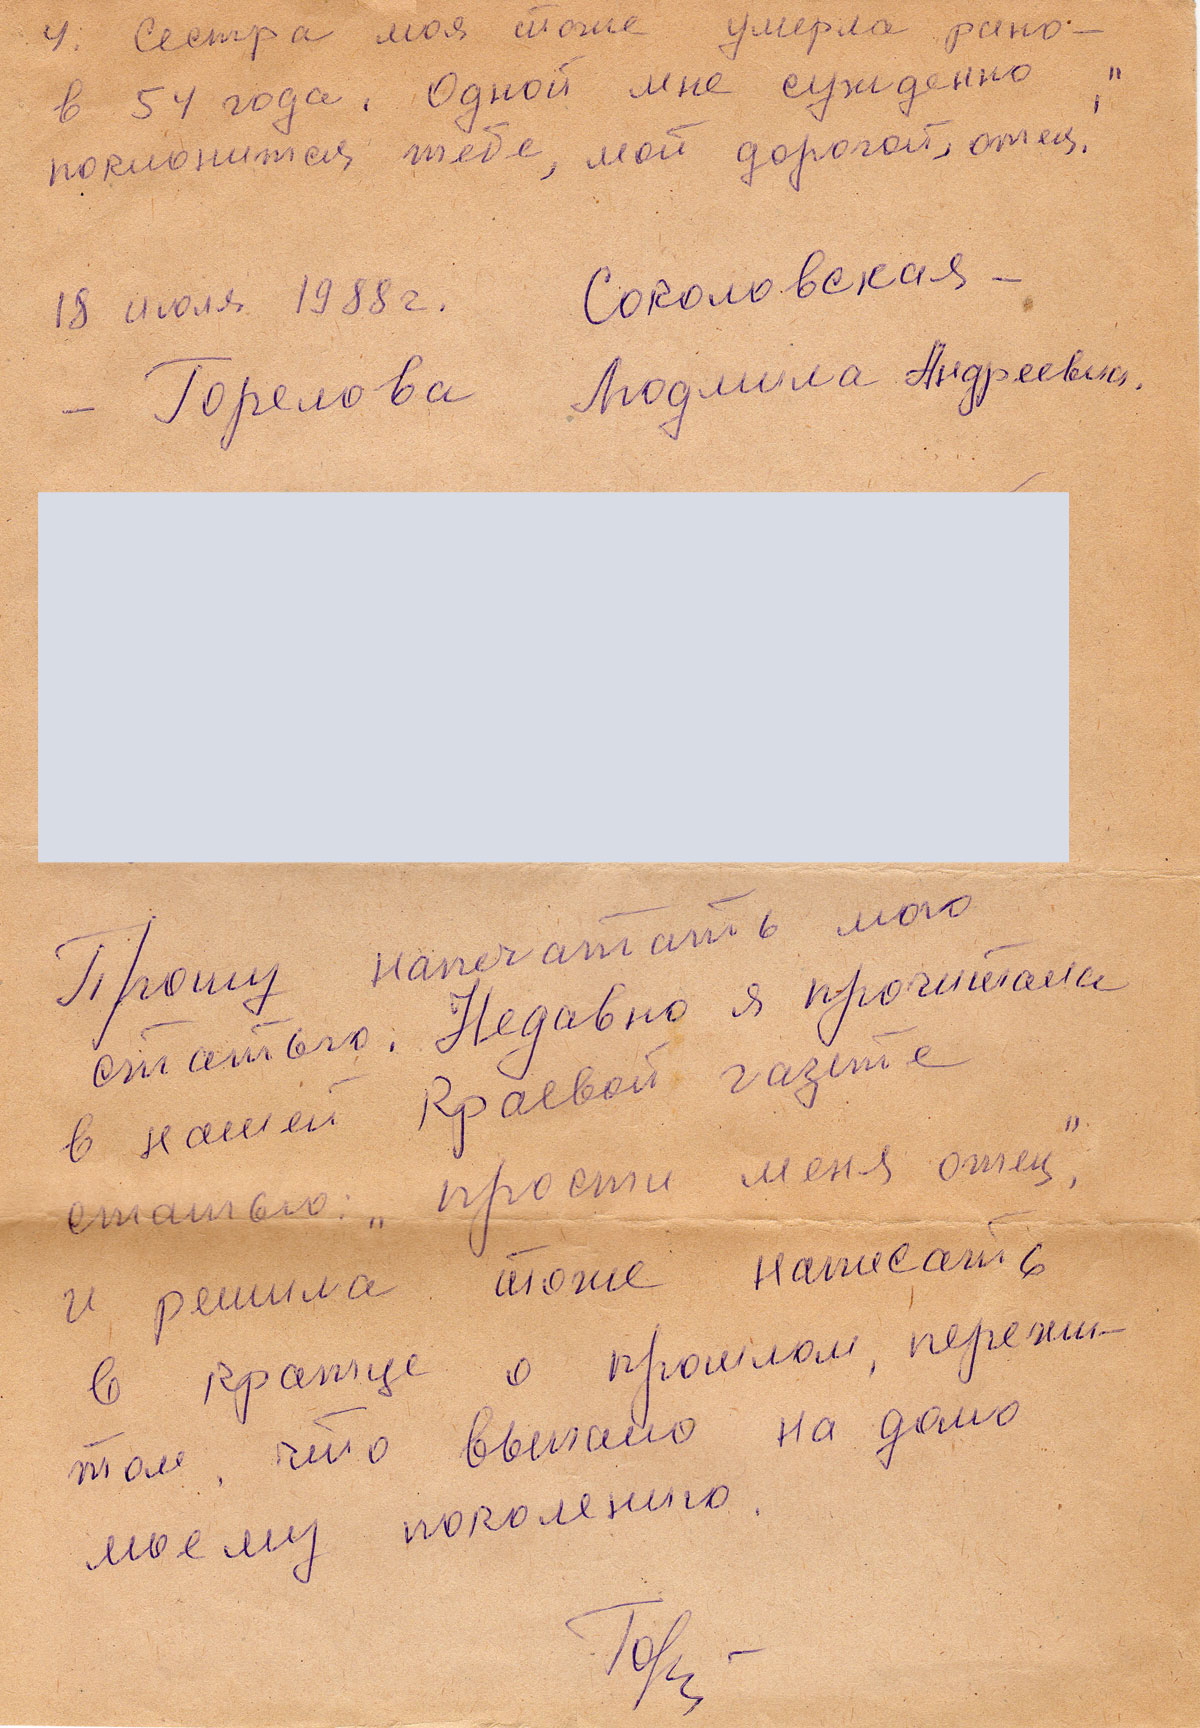 4. Сестра моя тоже умерла рано –
в 54 года. Одной мне сужденно
поклонится тебе, мой дорогой, отец."
18 июля 1988 г. Соколовская –
– Горелова Людмила Андреевна.
Прошу напечатать мою
статью. Недавно я прочитала
в нашей Краевой газете
статью: „прости меня отец",
и решила тоже написать
в кратце о прошлом, пережи–
том, что выпало на долю
моему поколению.